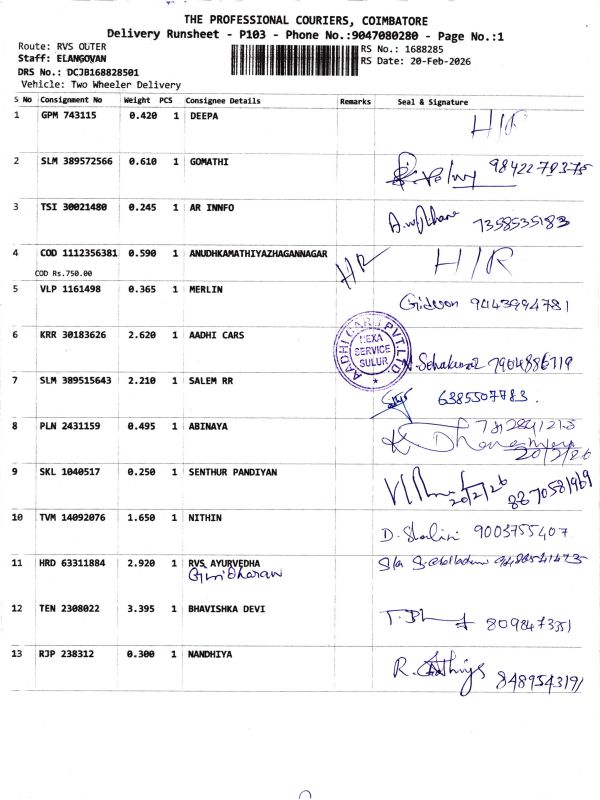 THE PROFESSIONAL COURIERS, COIMBATORE
Delivery Runsheet - P103 - Phone No.:9047080280 - Page No.:1
Route: RVS OUTER
RS No.: 1688285
Staff: ELANGOVAN
RS Date: 20-Feb-2026
DRS No.: DCJB168828501
Vehicle: Two Wheeler Delivery
S No Consignment No Weight PCS Consignee Details Remarks Seal & Signature
1 GPM 743115 0.420 1 DEEPA H/R
2 SLM 389572566 0.610 1 GOMATHI 9842270375
3 TSI 30021480 0.245 1 AR INNFO 7358535183
4 COD 1112356381 0.590 1 ANUDHKAMATHIYAZHAGANNAGAR H/R H/R
COD Rs.750.00
5 VLP 1161498 0.365 1 MERLIN Gideon 9443994781
6 KRR 30183626 2.620 1 AADHI CARS 7904886719
AADHI CARS PVT.LTD
NEXA
SERVICE
SULUR
7 SLM 389515643 2.210 1 SALEM RR 6385507783.
8 PLN 2431159 0.495 1 ABINAYA
20/2/26
9 SKL 1040517 0.250 1 SENTHUR PANDIYAN 20/2/26 8870581969
10 TVM 14092076 1.650 1 NITHIN D. Shalini 9003755407
11 HRD 63311884 2.920 1 RVS AYURVEDHA
Giridharan
12 TEN 2308022 3.395 1 BHAVISHKA DEVI 8098473351
13 RJP 238312 0.300 1 NANDHIYA 8489543191